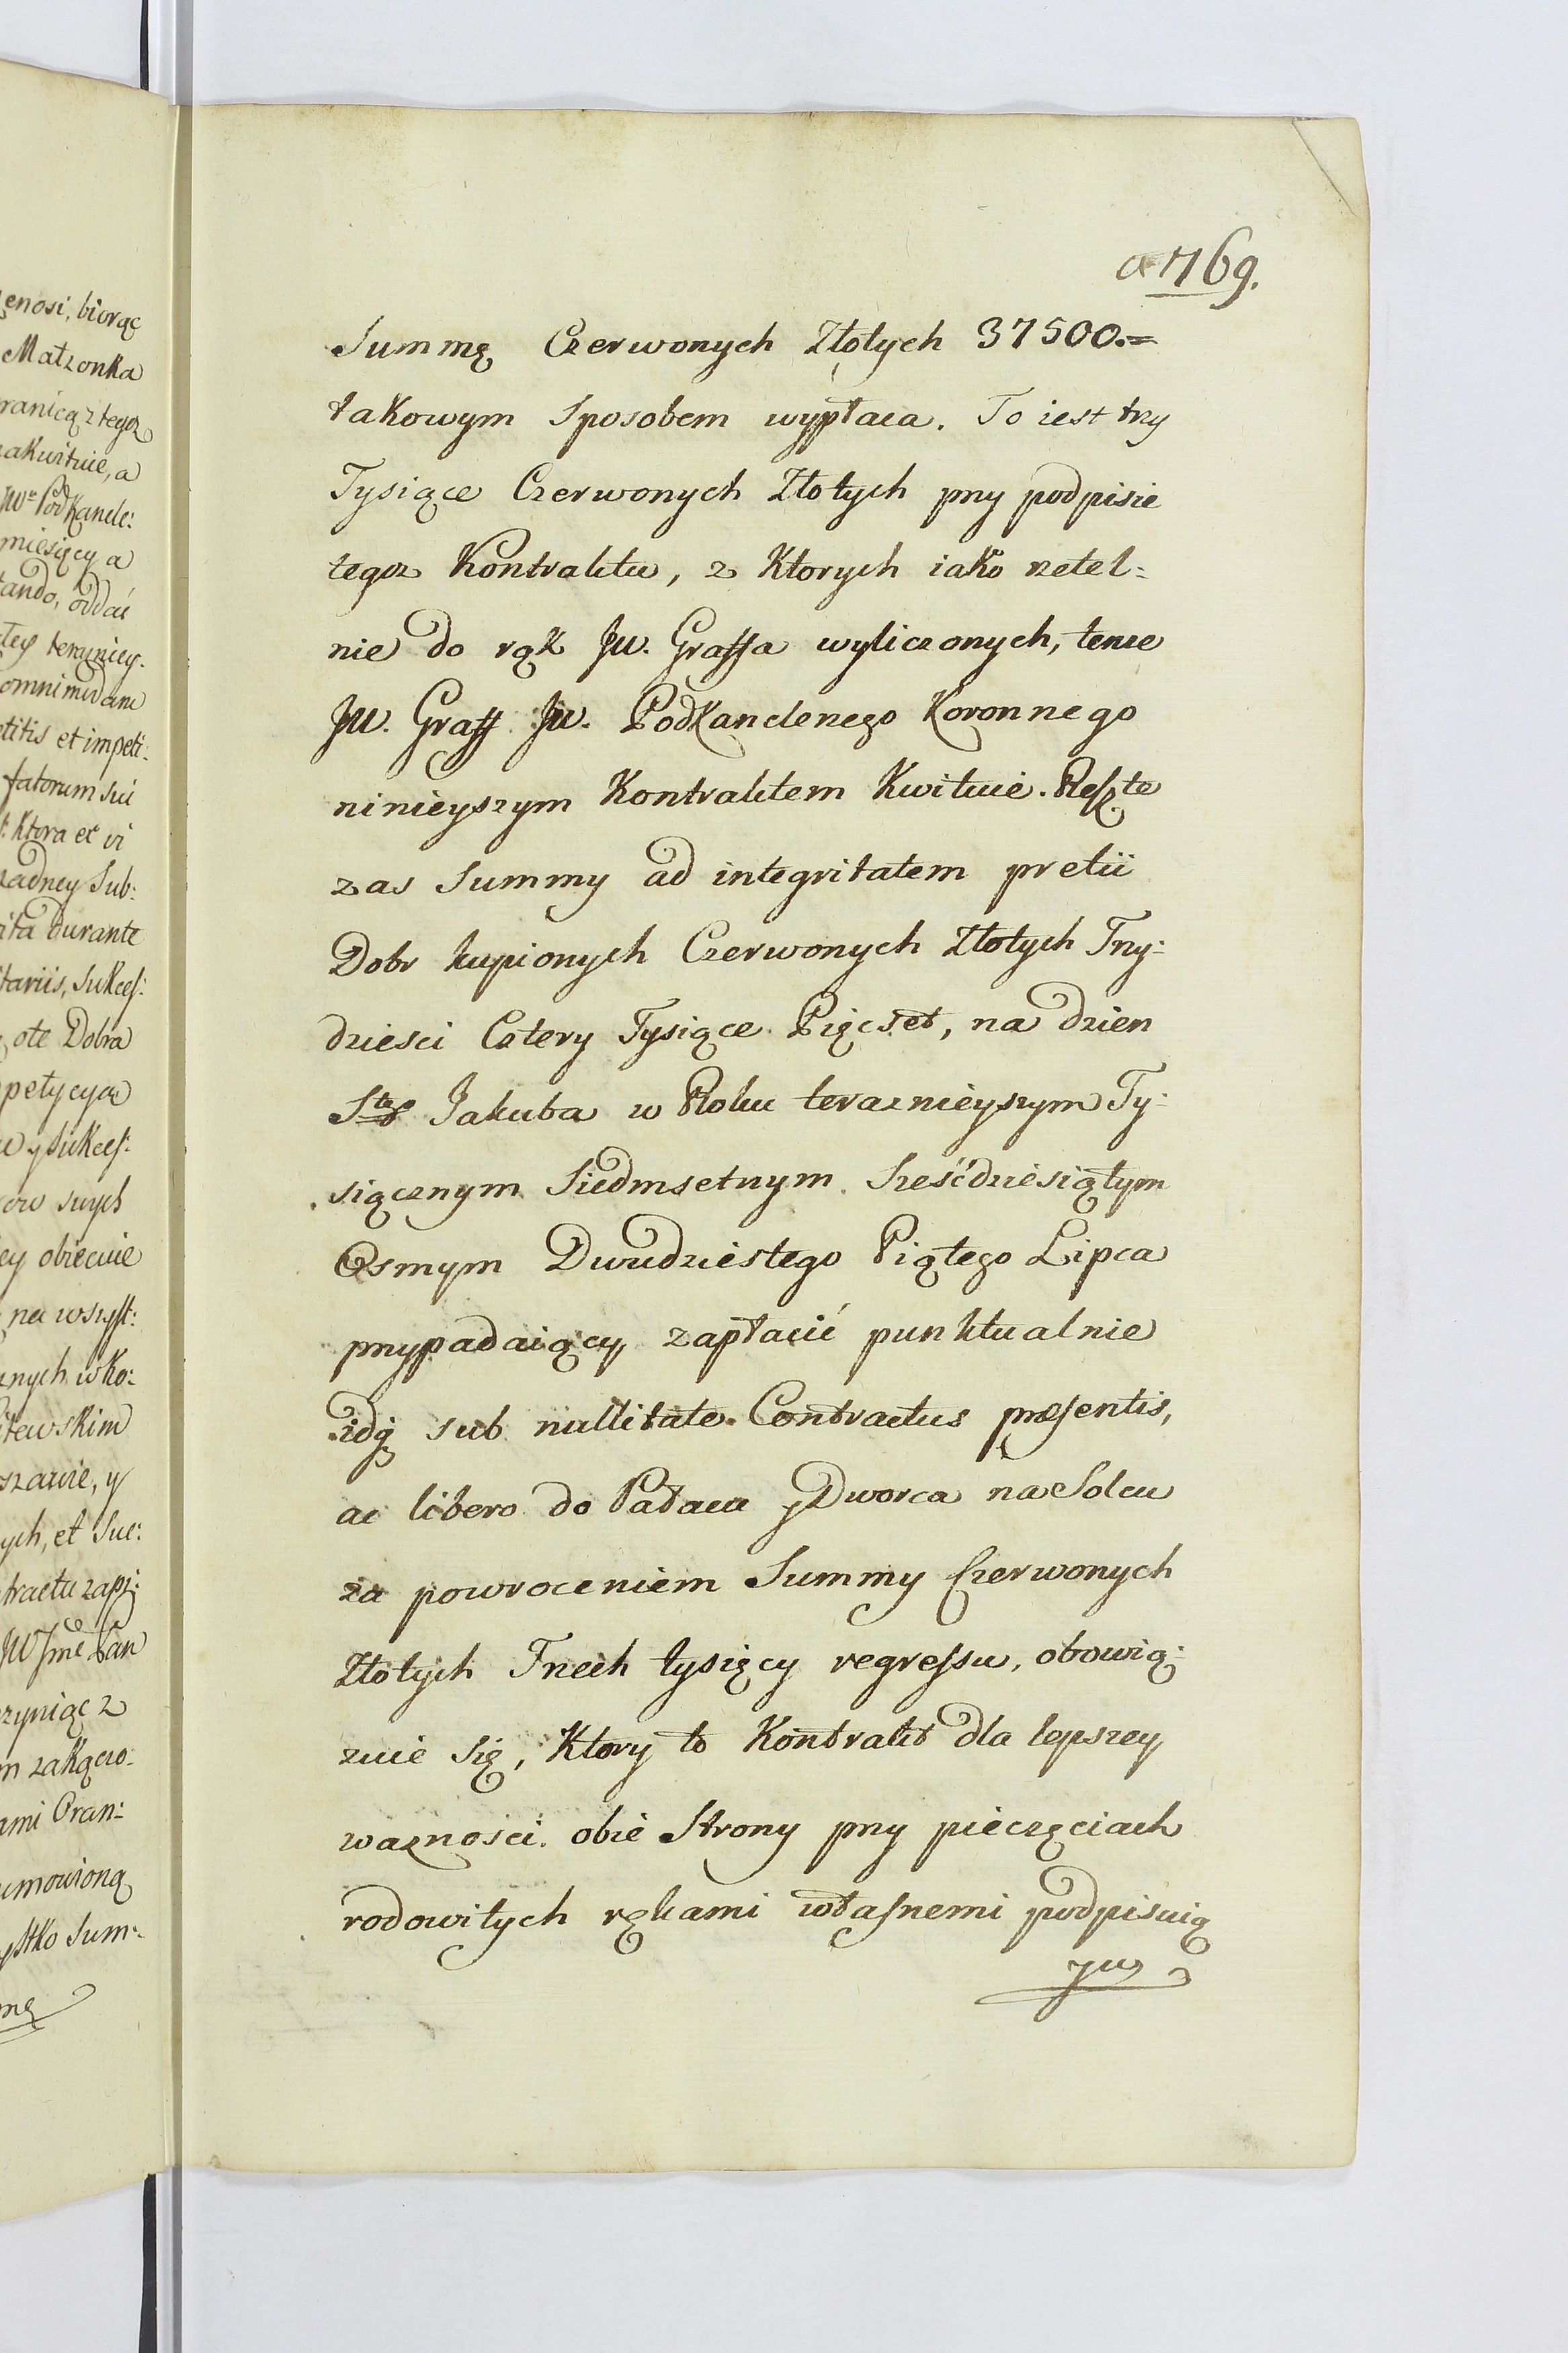 a 769.
Summę Czerwonych Złotych 37500.=
takowym sposobem wypłaca. To iest trzy
Tysiące Czerwonych Złotych przy podpisie
tegoz Kontraktu, z Ktorych iako rzetel:
nie do rąk JW. Graffa wyliczonych, tenze
JW. Graff JW. PodKanclerzego Koronnego
ninieyszym Kontraktem Kwituie. Reszte
zas Summy ad integritatem pretii
Dobr kupionych Czerwonych Złotych Trzy:
dziesci Cztery Tysiące Pięcset, na dzien
Stgo Jakuba w Roku teraznieyszym Ty:
siącznym Siedmsetnym Sześćdziesiątym
Osmym Dwudziestego Piątego Lipca
przypadaiący zapłacić punktualnie
idq sub nullitate Contractus præsentis,
ac libero do Pałacu y Dworca na Solcu
za powroceniem Summy Czerwonych
Złotych Trzech tysięcy regressu, obowią:
zuie się, Ktory to Kontrakt dla lepszey
waznosci obie Strony przy pieczęciach
rodowitych rękami własnemi podpisuią
enosi, biorąc
Małzonka
ranicą z tegoz
zakwituie, a
JWo PodKancle:
miesięcy a
tando, oddać
omnimodam
titis et impeti:
fatorum sui
Ktora et vi
zadney Sub:
ita durante
tariis, Sukces:
ote Dobra
petycya
y sukces:
ow swych
ey obiecuie
na wszyst:
znych w Ko:
itewskim
szawie, y
ych, et Suc:
tractu zapi:
JW Jmć Pan
zyniąc z
m zakączo:
ami Gran:
umowioną
ystko Sum:
mę